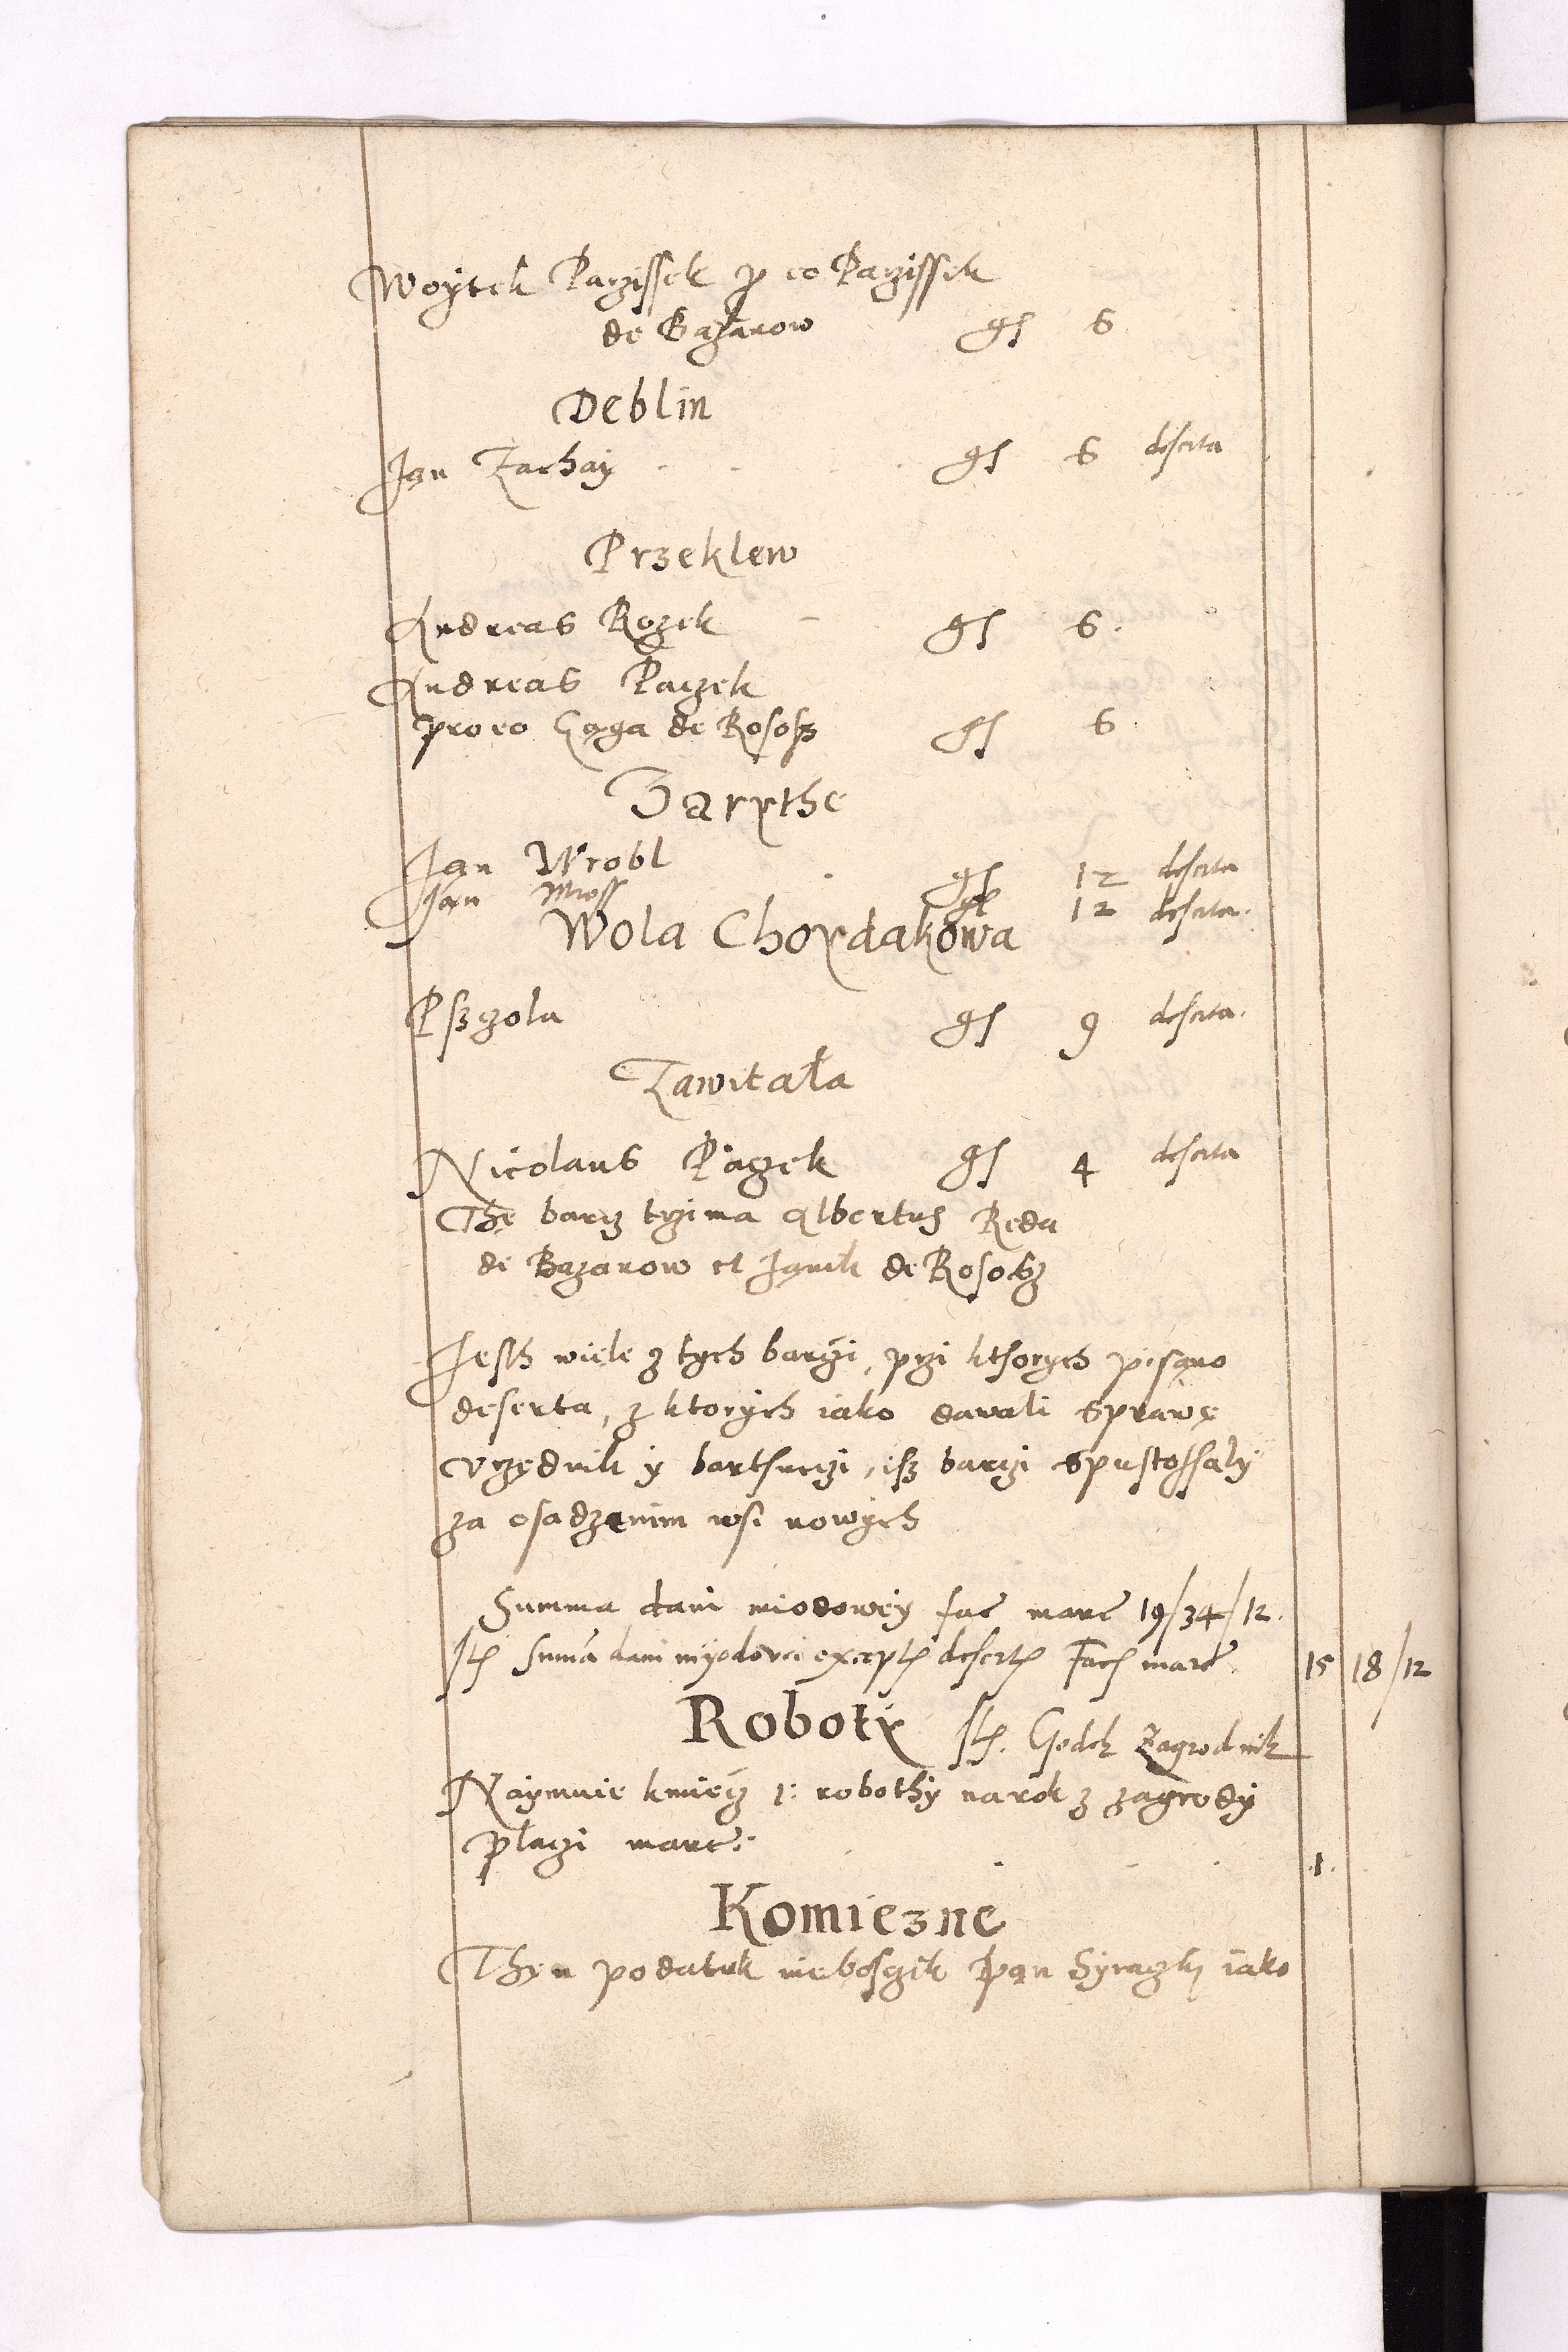 Woÿtek Paczissek p eo Paczissek
de Bazanow gr 6
Deblin
Jan Zachaÿ gr 6 deserta
Przeklew
Andreas Rozek gr 6
Andreas Paczek
pro eo de Rososz gr 6
Zarythe
Jan Wrobl gr 12 deserta
Jan Mross gr 12 deserta
Wola Choydakowa
Psczola gr 9 deserta
Zawitała
Nicolaus Pączek gr 4 deserta
Thę barcz trzima Albertus Reda
de Bazanow et Janik de Rososz
Jesth wiele z tych barczi, przi kthorych pisano
deserta, z ktorÿch iako dawali sprawę
vrzędnik ÿ barthniczi, isz barczi spustoszalÿ
za osadzenim wsi nowÿch
Summa dani miodoweÿ fac marc 19/34/12
It suma dani mÿodovei except desert Fac marc 15 18/12
Roboty It. Godek Zagrodnik
Naÿmuie kmiecz 1: robothÿ narok z zagrodÿ
płaczi marc: 1
Komiezne
Then podatek nieboszcik pan iako